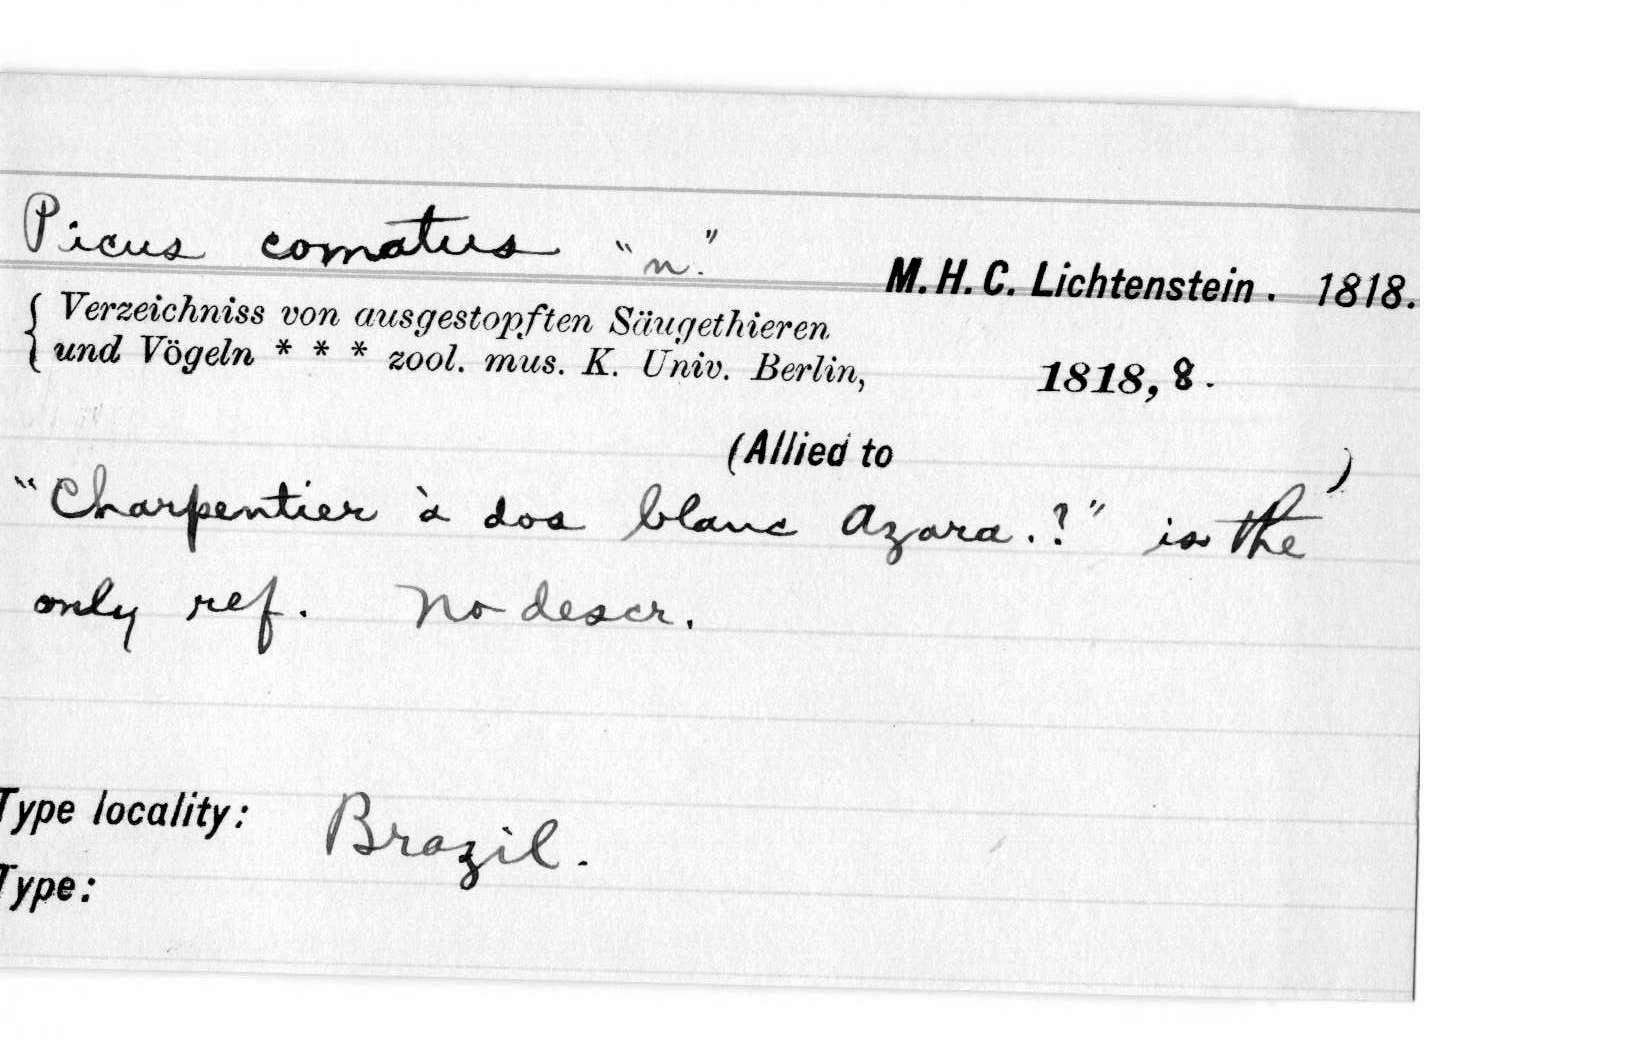 Picus comatus "n."
M. H. C. Lichtenstein. 1818.
{ Verzeichniss von ausgestopften Säugethieren
und Vögeln * * * zool. mus. K. Univ. Berlin, 1818, 8.
(Allied to )
"Charpentier à dos blanc Azara.?" is the
only ref. No descr.
Type locality: Brazil.
Type: